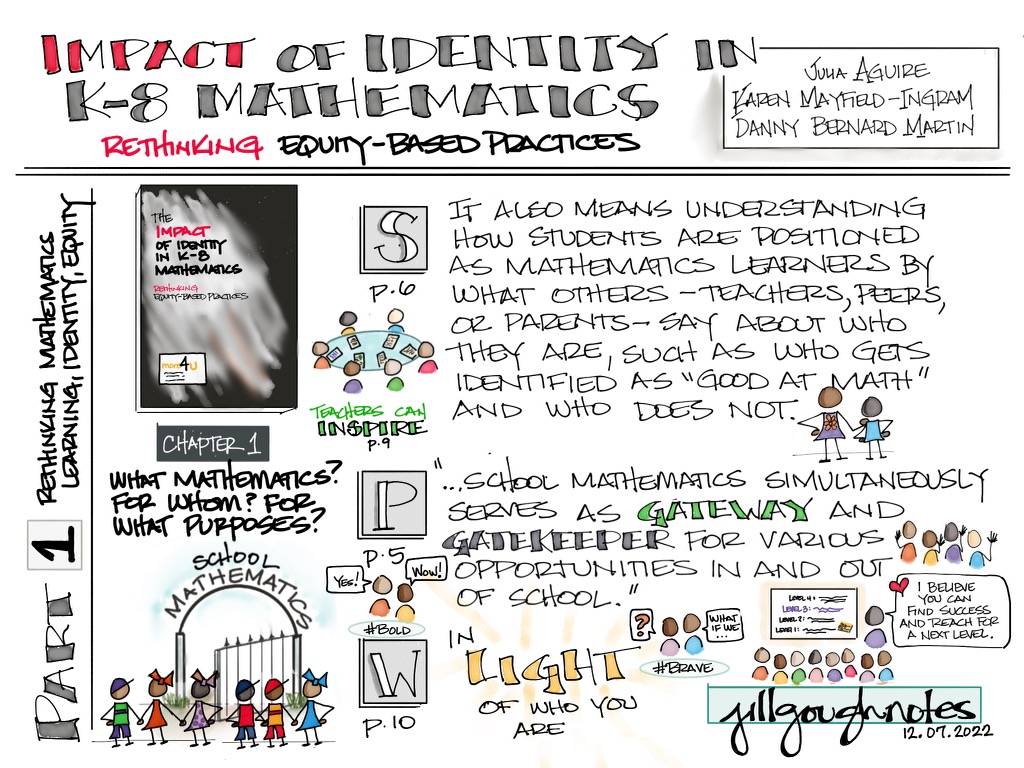 IMPACT OF IDENTITY IN
K-8 MATHEMATICS
RETHINKING EQUITY-BASED PRACTICES
JULIA AGUIRE
KAREN MAYFIELD-INGRAM
DANNY BERNARD MARTIN
PART 1
RETHINKING MATHEMATICS
LEARNING, IDENTITY, EQUITY
THE
IMPACT
OF IDENTITY
IN K-8
MATHEMATICS
RETHINKING
EQUITY-BASED PRACTICES
more4U
CHAPTER 1
WHAT MATHEMATICS?
FOR WHOM? FOR
WHAT PURPOSES?
SCHOOL
MATHEMATICS
S
P.6
IT ALSO MEANS UNDERSTANDING
HOW STUDENTS ARE POSITIONED
AS MATHEMATICS LEARNERS BY
WHAT OTHERS - TEACHERS, PEERS,
OR PARENTS - SAY ABOUT WHO
THEY ARE, SUCH AS WHO GETS
IDENTIFIED AS "GOOD AT MATH"
AND WHO DOES NOT.
TEACHERS CAN
INSPIRE
P.9
P
P.5
"...SCHOOL MATHEMATICS SIMULTANEOUSLY
SERVES AS GATEWAY AND
GATEKEEPER FOR VARIOUS
OPPORTUNITIES IN AND OUT
OF SCHOOL."
YES!
WOW!
#BOLD
W
P.10
IN
LIGHT
OF WHO YOU
ARE
?
WHAT
IF WE
...
#BRAVE
LEVEL 4:
LEVEL 3:
LEVEL 2:
LEVEL 1:
I BELIEVE
YOU CAN
FIND SUCCESS
AND REACH FOR
A NEXT LEVEL.
jillgoughnotes
12.07.2022